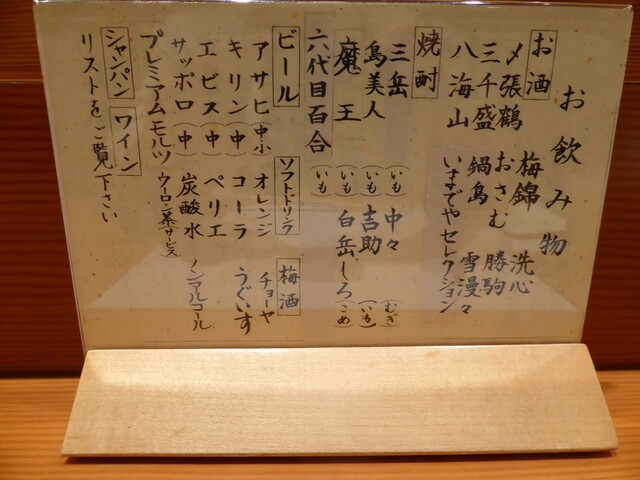 お飲み物
お酒
〆張鶴 梅錦 洗心
三千盛 おさむ 勝駒
八海山 鍋島 雪漫々
いまでやセレクション
焼酎
三岳 (いも) 中々 (むぎ)
島美人 (いも) 吉助 (いも)
魔王 (いも) 白岳しろ (こめ)
六代目百合 (いも)
ビール
アサヒ 中小
キリン (中)
エビス (中)
サッポロ (中)
プレミアムモルツ
ソフトドリンク
オレンジ
コーラ
ペリエ
炭酸水
ウーロン茶サービス
梅酒
チョーヤ
うぐいす
ノンアルコール
シャンパン ワイン
リストをご覧下さい